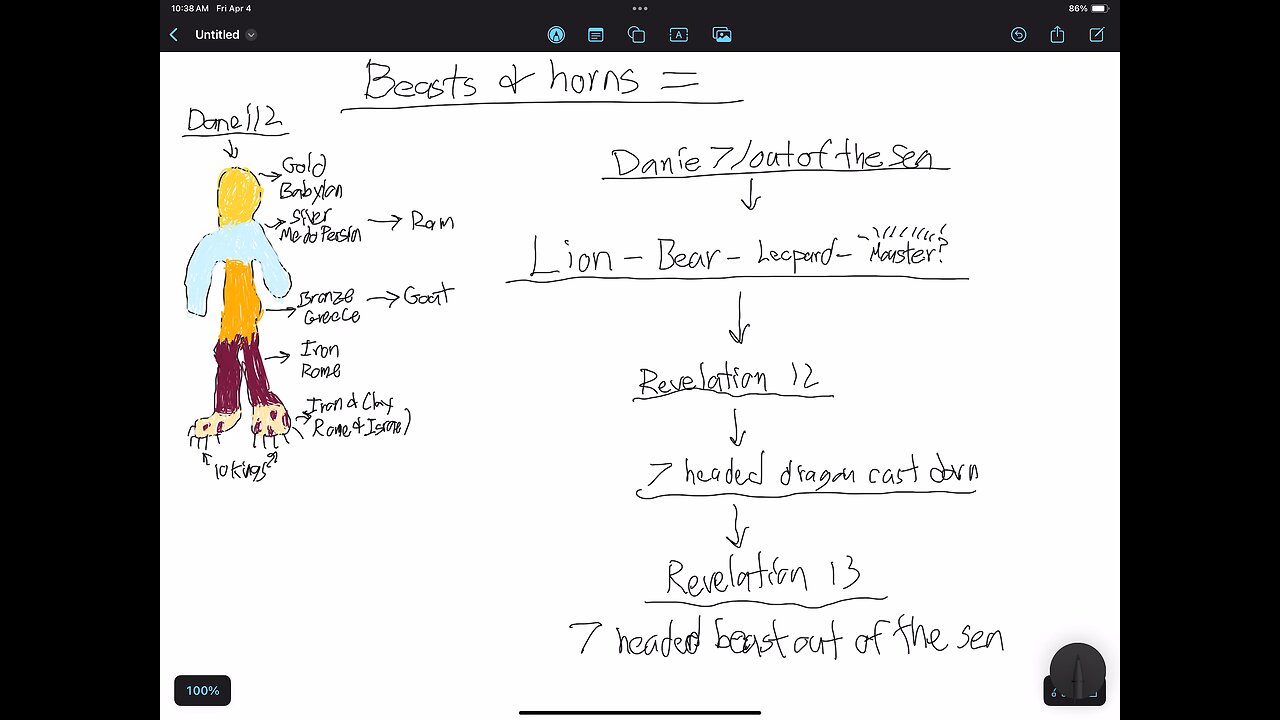 10:38 AM Fri Apr 4
86%
Untitled
Beasts & horns =
Daniel 2
Gold
Babylon
Silver
Medo Persia → Ram
Bronze → Goat
Greece
Iron
Rome
Iron & Clay
Rome & Israel)
10 kings
Danie 7/out of the sea
Lion - Bear - Leopard - Monster?
Revelation 12
7 headed dragon cast down
Revelation 13
7 headed beast out of the sea
100%